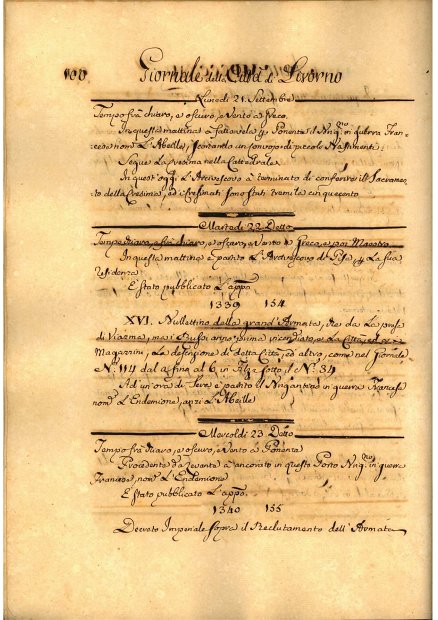 100 Giornale della Città di Livorno
Lunedi 21. Settembre
Tempo frà chiaro, e oscuro, e Vento a Greco.
In questa mattina à fatto vela p. Ponente il Brig.no in guerra Fran-
cese nom. L'Abeille, scortando un convojo di piccoli Bastimenti.
Segue La Vesima nella Cattedrale.
In quest'oggi L'Arcivescovo à terminato di conferire il Sacramen-
to della Cresima, ed i Cresimati sono stati tremila cinquecento
Martedi 22. Detto
Tempo chiaro, e frà chiaro, e oscuro, e Vento a Greco, e poi Maestro
In questa mattina è partito L'Arcivescovo di Pisa p. La sua
Residenza
È stato pubblicato L'appo.
1339 154
XVI. Bullettino della grand'Armata, che dà La presa
di Viasma, mà i Russi anno prima incendiato, e La Città, ed i
Magazzini, La descrizione di detta Città, ed altro, come nel Giornale
N.o 114 dal a fina al 6 in Filza sotto il N.o 34
Ad un'ora di sera è partito il Brigantino in guerra Francese
nom. L'Endemione, anzi L'Abeille
Mercoldi 23 Detto
Tempo frà chiaro, e oscuro, e Vento a Ponente
Procedente da Levante à ancorato in questo Porto Brig.no in guerra
Francese, nom. L'Endemione
È stato pubblicato L'appo.
1340 155
Decreto Imperiale sopra il Reclutamento dell'Armata